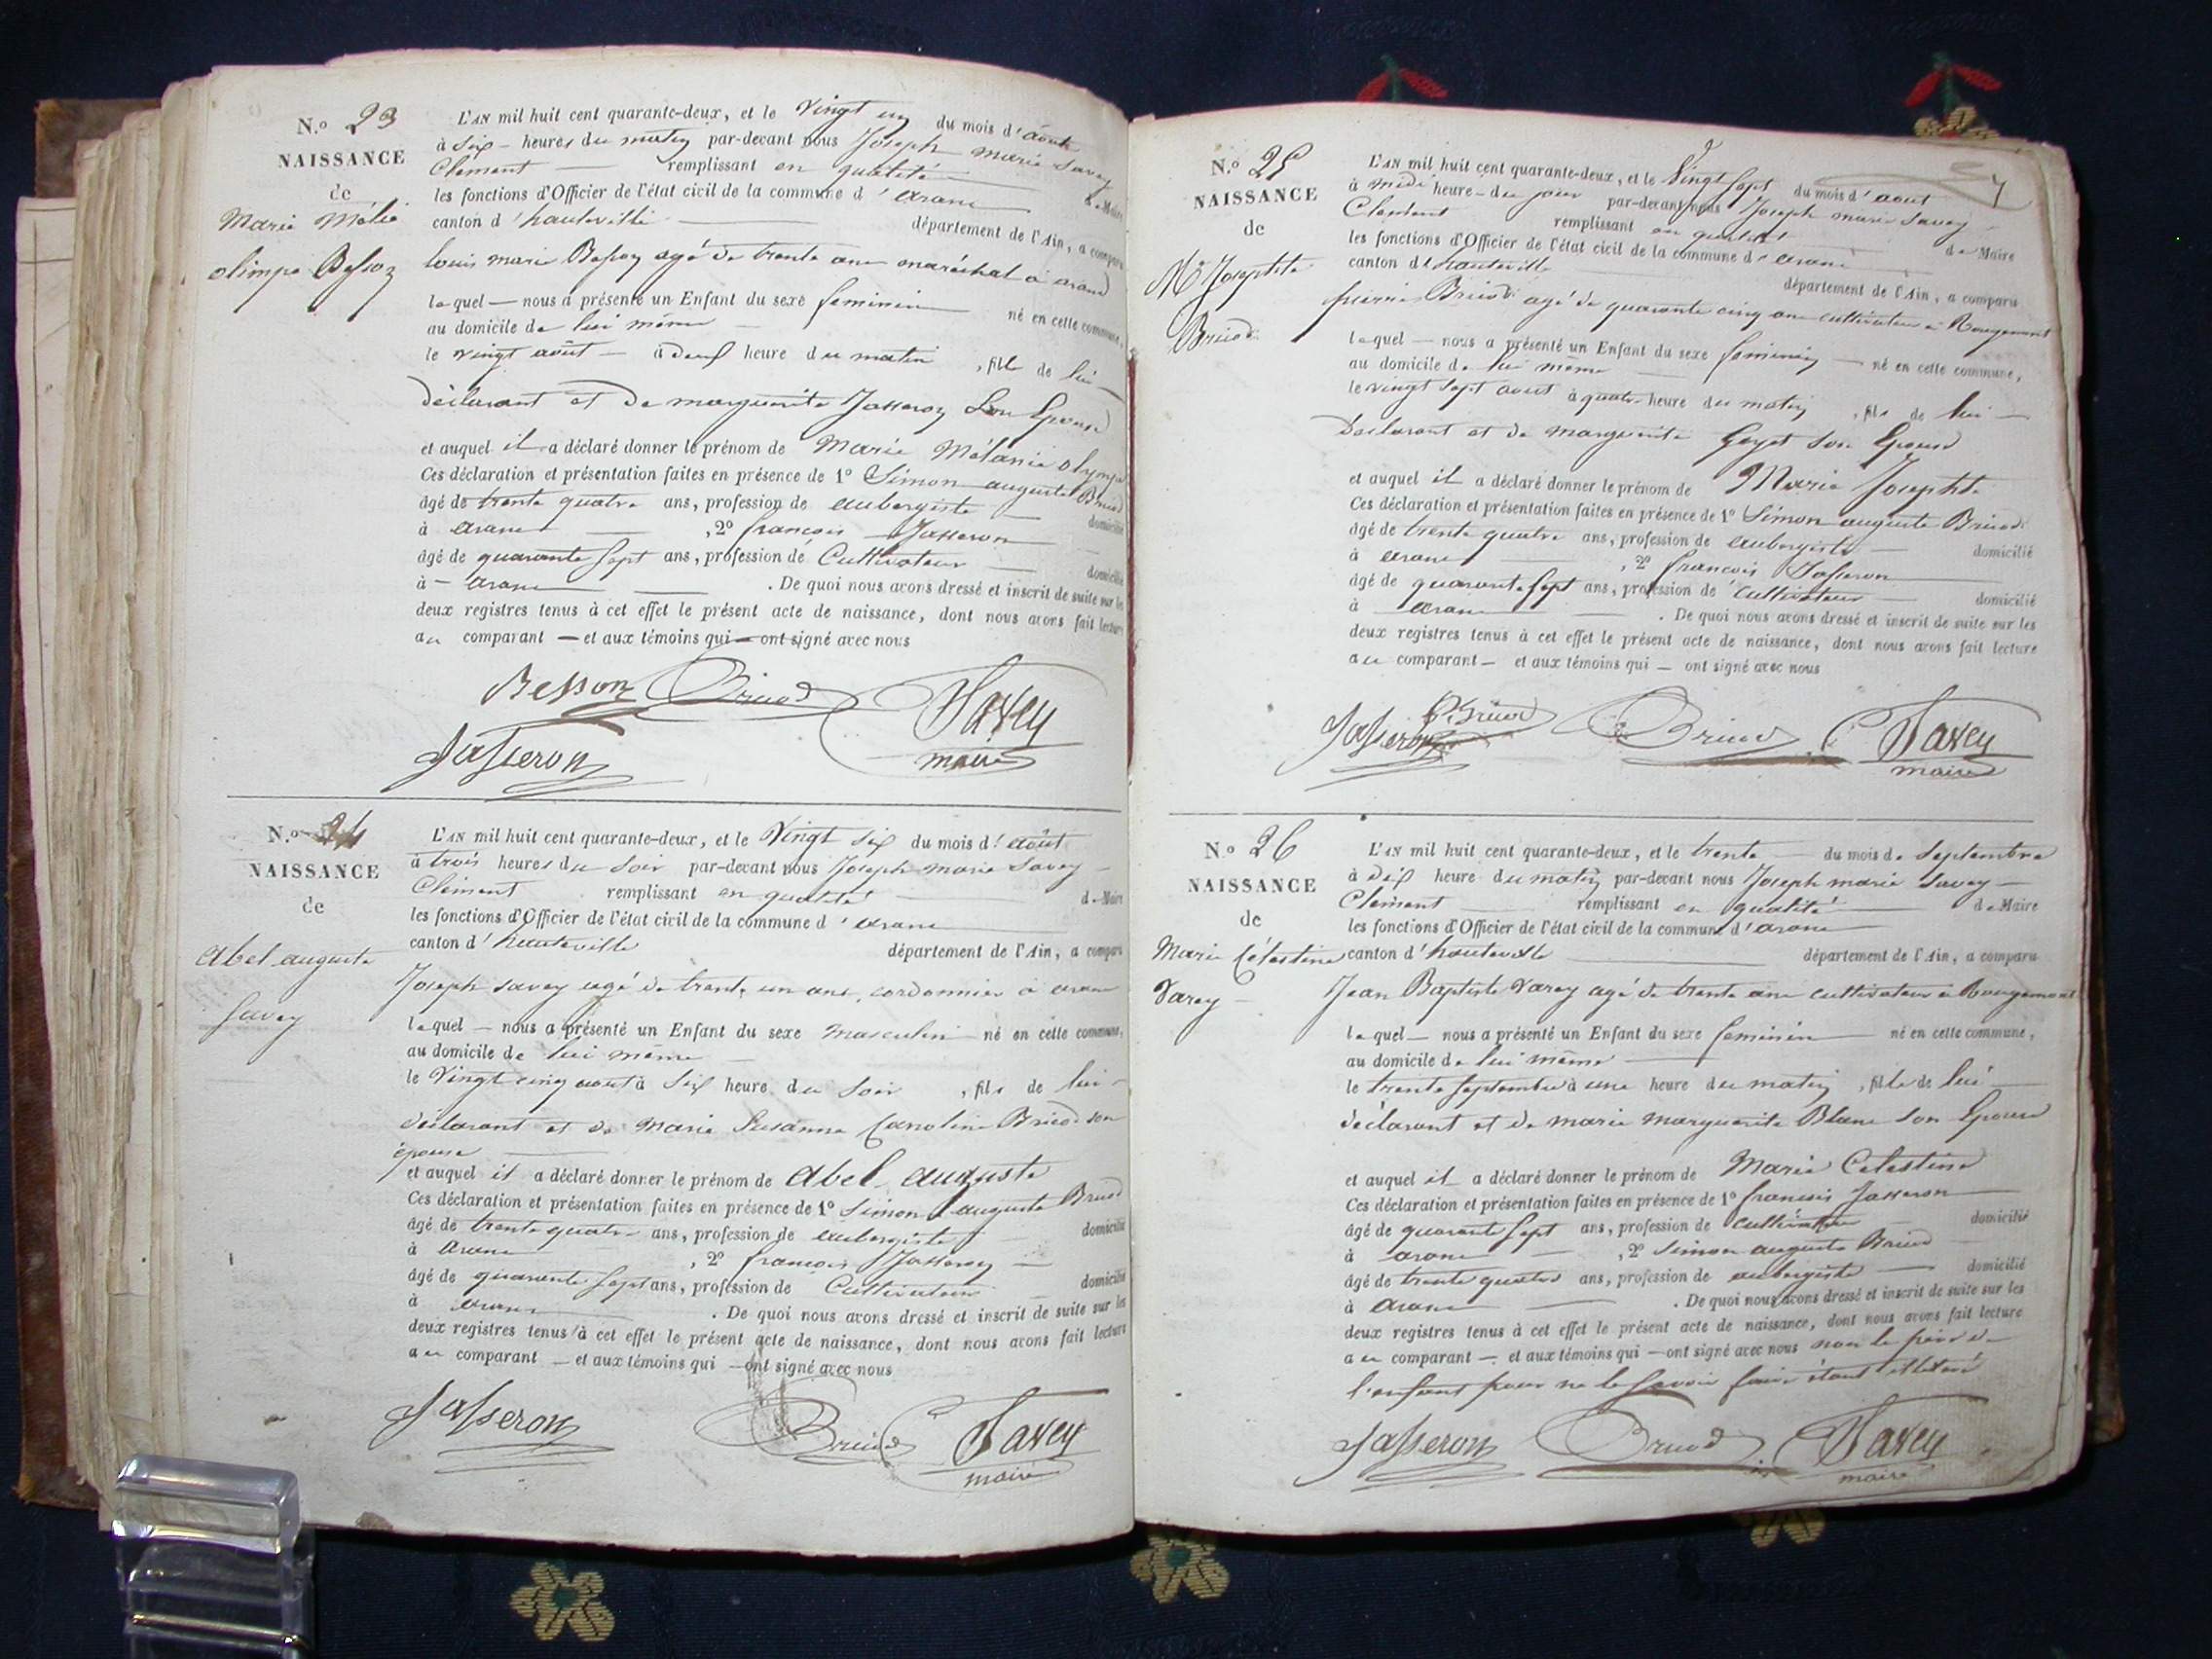 N.o 23
NAISSANCE
de
Marie Mélie
olimpe Besson
L'AN mil huit cent quarante-deux, et le Vingt un du mois d'août
à six heures du matin par-devant nous Joseph marie Savey
Clement remplissant en qualité de Maire
les fonctions d'Officier de l'état civil de la commune d'arane
canton d'hauteville département de l'Ain, a comparu
louis marie Besson agé de trente ans maréchal à arane
lequel nous a présenté un Enfant du sexe feminin né en cette commune,
au domicile de lui même
le vingt août à deux heure du matin, fille de lui
déclarant et de marguerite Jasseron Son Epouse
et auquel il a déclaré donner le prénom de Marie Mélanie olympe
Ces déclaration et présentation faites en présence de 1o Simon auguste Bruod
âgé de trente quatre ans, profession de aubergiste domicilié
à arane, 2o francois Jasseron
âgé de quarante sept ans, profession de Cultivateur domicilié
à arane. De quoi nous avons dressé et inscrit de suite sur les
deux registres tenus à cet effet le présent acte de naissance, dont nous avons fait lecture
au comparant et aux témoins qui ont signé avec nous
Besson Bruod Savey
Jasseron maire
N.o 24
NAISSANCE
de
Abel auguste
Savey
L'AN mil huit cent quarante-deux, et le Vingt six du mois d'août
à trois heures du soir par-devant nous Joseph marie Savey
Clement remplissant en qualité de Maire
les fonctions d'Officier de l'état civil de la commune d'arane
canton d'hauteville département de l'Ain, a comparu
Joseph savey agé de trente un ans, cordonnier à arane
lequel nous a présenté un Enfant du sexe masculin né en cette commune,
au domicile de lui même
le Vingt cinq aout à six heure du soir, fils de lui
déclarant et de Marie Susanne Caroline Bruod son
épouse
et auquel il a déclaré donner le prénom de Abel auguste
Ces déclaration et présentation faites en présence de 1o Simon auguste Bruod
âgé de trente quatre ans, profession de aubergiste domicilié
à arane, 2o francois Jasseron
âgé de quarante sept ans, profession de Cultivateur domicilié
à arane. De quoi nous avons dressé et inscrit de suite sur les
deux registres tenus à cet effet le présent acte de naissance, dont nous avons fait lecture
au comparant et aux témoins qui ont signé avec nous
Jasseron Bruod Savey
maire
N.o 25
NAISSANCE
de
Me Josephte
Bruod
L'AN mil huit cent quarante-deux, et le Vingt sept du mois d'aout
à midi heure du jour par-devant nous Joseph marie savey
Clement remplissant en qualité de Maire
les fonctions d'Officier de l'état civil de la commune d'arane
canton d'hauteville département de l'Ain, a comparu
pierre Bruod agé de quarante cinq ans cultivateur à Rougemont
lequel nous a présenté un Enfant du sexe feminin né en cette commune,
au domicile de lui même
le vingt sept aout à quatre heure du matin, fils de lui
Déclarant et de marguerite Goyet son Epouse
et auquel il a déclaré donner le prénom de Marie Josephte
Ces déclaration et présentation faites en présence de 1o Simon auguste Bruod
âgé de trente quatre ans, profession de aubergiste domicilié
à arane, 2o francois Jasseron
âgé de quarante sept ans, profession de Cultivateur domicilié
à arane. De quoi nous avons dressé et inscrit de suite sur les
deux registres tenus à cet effet le présent acte de naissance, dont nous avons fait lecture
au comparant et aux témoins qui ont signé avec nous
Jasseron P. Bruod Bruod Savey
maire
N.o 26
NAISSANCE
de
Marie Célestine
Varey
L'AN mil huit cent quarante-deux, et le trente du mois de septembre
à dix heure du matin par-devant nous Joseph marie Savey
Clement remplissant en qualité de Maire
les fonctions d'Officier de l'état civil de la commune d'arane
canton d'hauteville département de l'Ain, a comparu
Jean Baptiste Varey agé de trente ans cultivateur à Rougemont
lequel nous a présenté un Enfant du sexe feminin né en cette commune,
au domicile de lui même
le trente septembre à une heure du matin, fille de lui
déclarant et de marie marguerite Blanc son Epouse
et auquel il a déclaré donner le prénom de Marie Celestine
Ces déclaration et présentation faites en présence de 1o francois Jasseron
âgé de quarante sept ans, profession de cultivateur domicilié
à arane, 2o Simon auguste Bruod
âgé de trente quatre ans, profession de aubergiste domicilié
à arane. De quoi nous avons dressé et inscrit de suite sur les
deux registres tenus à cet effet le présent acte de naissance, dont nous avons fait lecture
au comparant et aux témoins qui ont signé avec nous non le père de
l'enfant pour ne le savoir faire étant illétéré
Jasseron Bruod Savey
maire